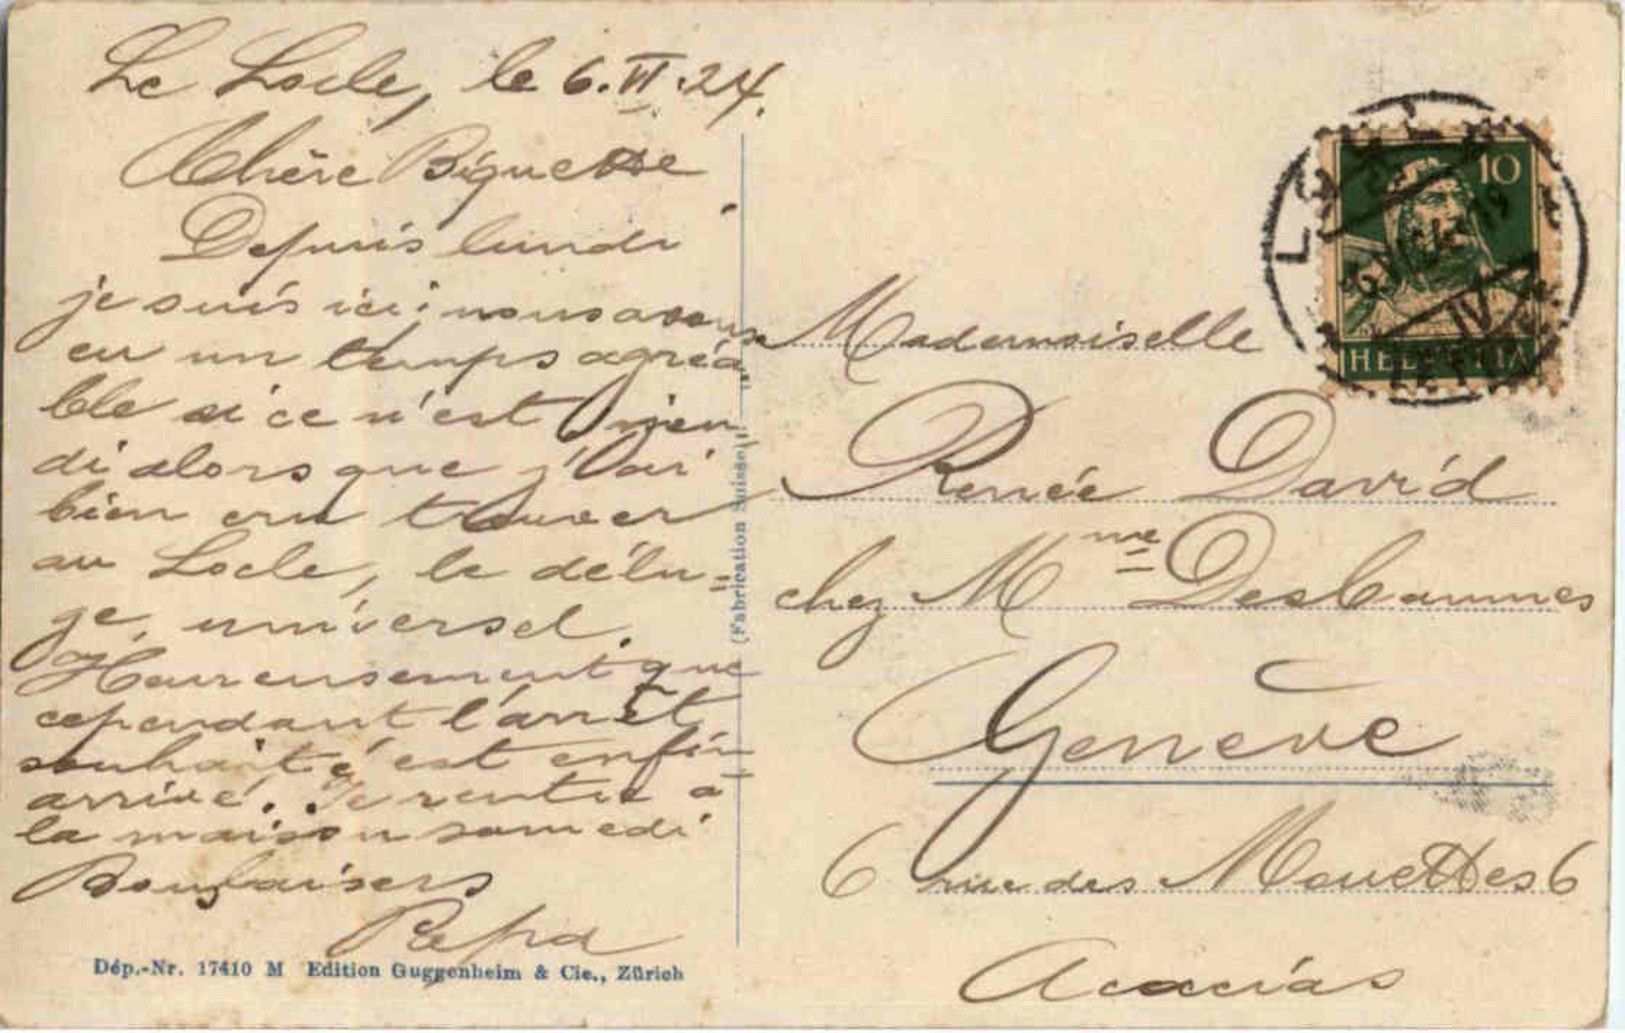 Le Locle, le 6.VI.24.
Chère Biquette
Depuis lundi
je suis ici; nous avons
eu un temps agréa-
ble si ce n'est jeu-
di alors que j'ai
bien cru trouver
au Locle, le délu-
ge universel.
Heureusement que
cependant l'arrêt
souhaité est enfin
arrivé. Je rentre à
la maison samedi
Bons baisers
Papa
Dép.-Nr. 17410 M Edition Guggenheim & Cie., Zürich
(Fabrication Suisse)
10
HELVETIA
Mademoiselle
Renée David
chez Mme Desbaumes
Genève
6 rue des Mouettes 6
Acacias